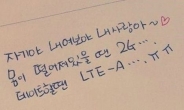 자기야 내여보야 내사랑아~♡
몸이 떨어져있을 땐 2G....
데이트할땐 LTE-A.... ㅠㅠ